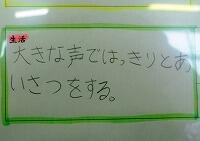 生活
大きな声ではっきりとあ
いさつをする。